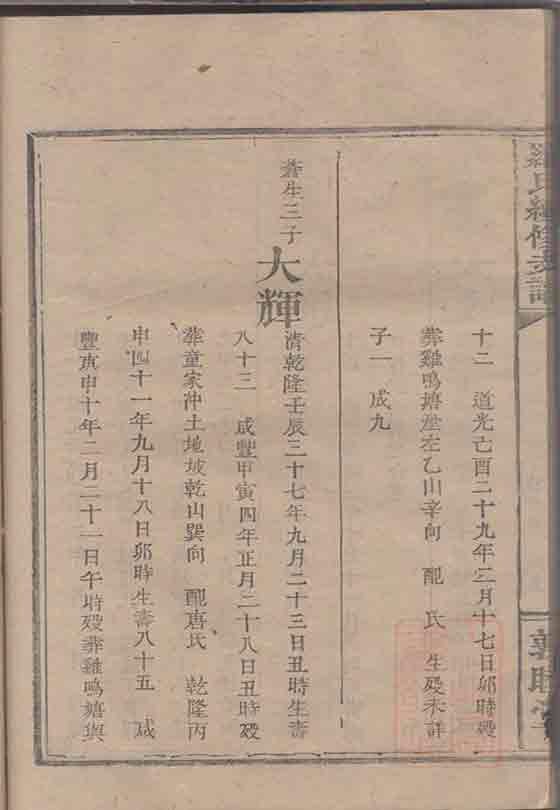 氏續修支譜
十二 道光己酉二十九年三月十七日卯時歿
葬雞鳴嬉堂左乙山辛向 配 氏 生歿未詳
子一 成九
蒼生三子 大輝
清乾隆壬辰三十七年九月二十三日丑時生壽
八十三 咸豐甲寅四年正月二十八日丑時歿
葬童家沖土地坡乾山巽向 配唐氏 乾隆丙
申四十一年九月十八日卯時生壽八十五 咸
豐庚申十年二月二十一日午時歿葬雞鳴嬉與
敦睦堂